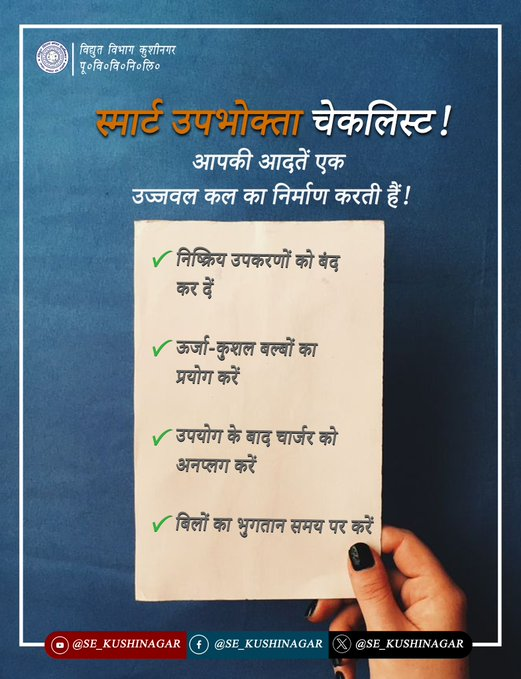 विद्युत विभाग कुशीनगर
पू०वि०वि०नि०लि०
स्मार्ट उपभोक्ता चेकलिस्ट!
आपकी आदतें एक
उज्जवल कल का निर्माण करती हैं!
निष्क्रिय उपकरणों को बंद
कर दें
ऊर्जा-कुशल बल्बों का
प्रयोग करें
उपयोग के बाद चार्जर को
अनप्लग करें
बिलों का भुगतान समय पर करें
@SE_KUSHINAGAR @SE_KUSHINAGAR @SE_KUSHINAGAR